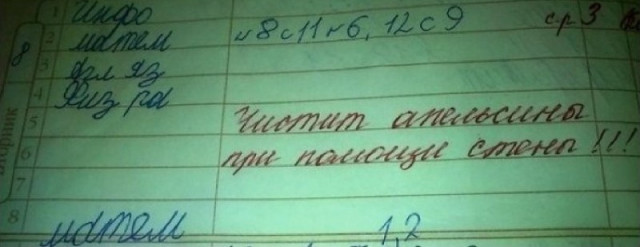 8
Вторник
1 Инфо
2 матем №8 с11 №6, 12 с 9 ср 3
3 Ягл яз
4 Физ ра
5 Чистит апельсины
6 при помощи стены!!!
7
8
матем 1,2